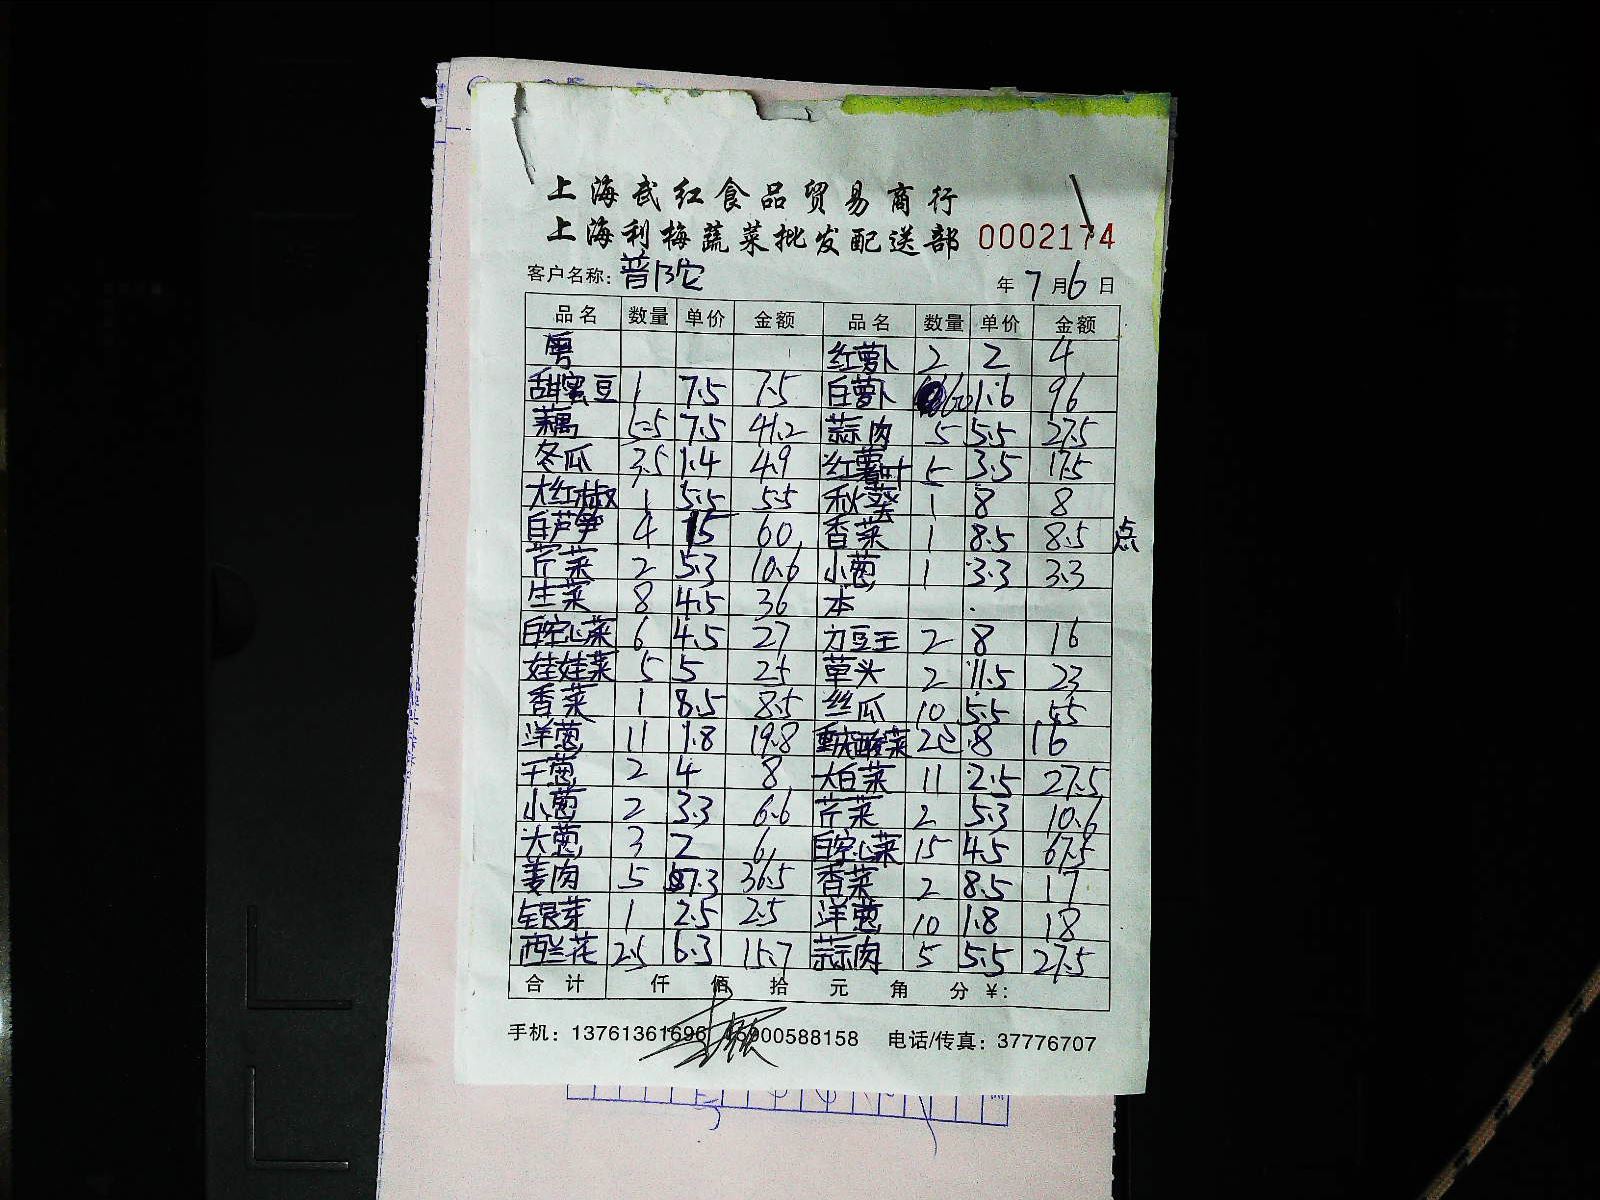 上海武红食品贸易商行
上海利梅蔬菜批发配送部 0002174
客户名称: 普陀 年 7 月 6 日
品名 数量 单价 金额 品名 数量 单价 金额
粤 红萝卜 2 2 4
甜蜜豆 1 7.5 7.5 白萝卜 60 1.6 96
藕 5.5 7.5 41.2 蒜肉 5 5.5 27.5
冬瓜 3.5 1.4 4.9 红薯叶 5 3.5 17.5
大红椒 1 5.5 5.5 秋葵 1 8 8
白芦笋 4 15 60 香菜 1 8.5 8.5 点
芹菜 2 5.3 10.6 小葱 1 3.3 3.3
生菜 8 4.5 36 本
白空心菜 6 4.5 27 刀豆王 2 8 16
娃娃菜 5 5 25 草头 2 11.5 23
香菜 1 8.5 8.5 丝瓜 10 5.5 55
洋葱 11 1.8 19.8 重庆酸菜 2包 8 16
干葱 2 4 8 大白菜 11 2.5 27.5
小葱 2 3.3 6.6 芹菜 2 5.3 10.6
大葱 3 2 6 白空心菜 15 4.5 67.5
姜肉 5 7.3 36.5 香菜 2 8.5 17
银芽 1 2.5 2.5 洋葱 10 1.8 18
西兰花 2.5 6.3 15.7 蒜肉 5 5.5 27.5
合计 仟 佰 拾 元 角 分 ¥:
手机: 13761361696 15900588158 电话/传真: 37776707